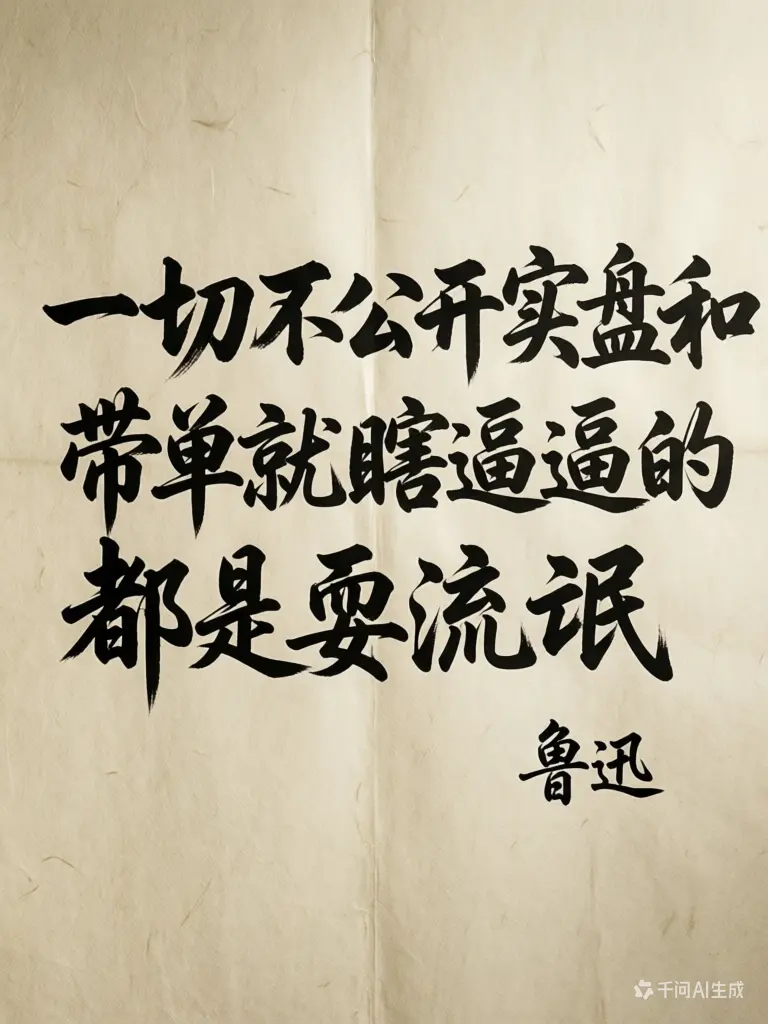 一切不公开实盘和
带单就瞎逼逼的
都是耍流氓
鲁迅
千问AI生成